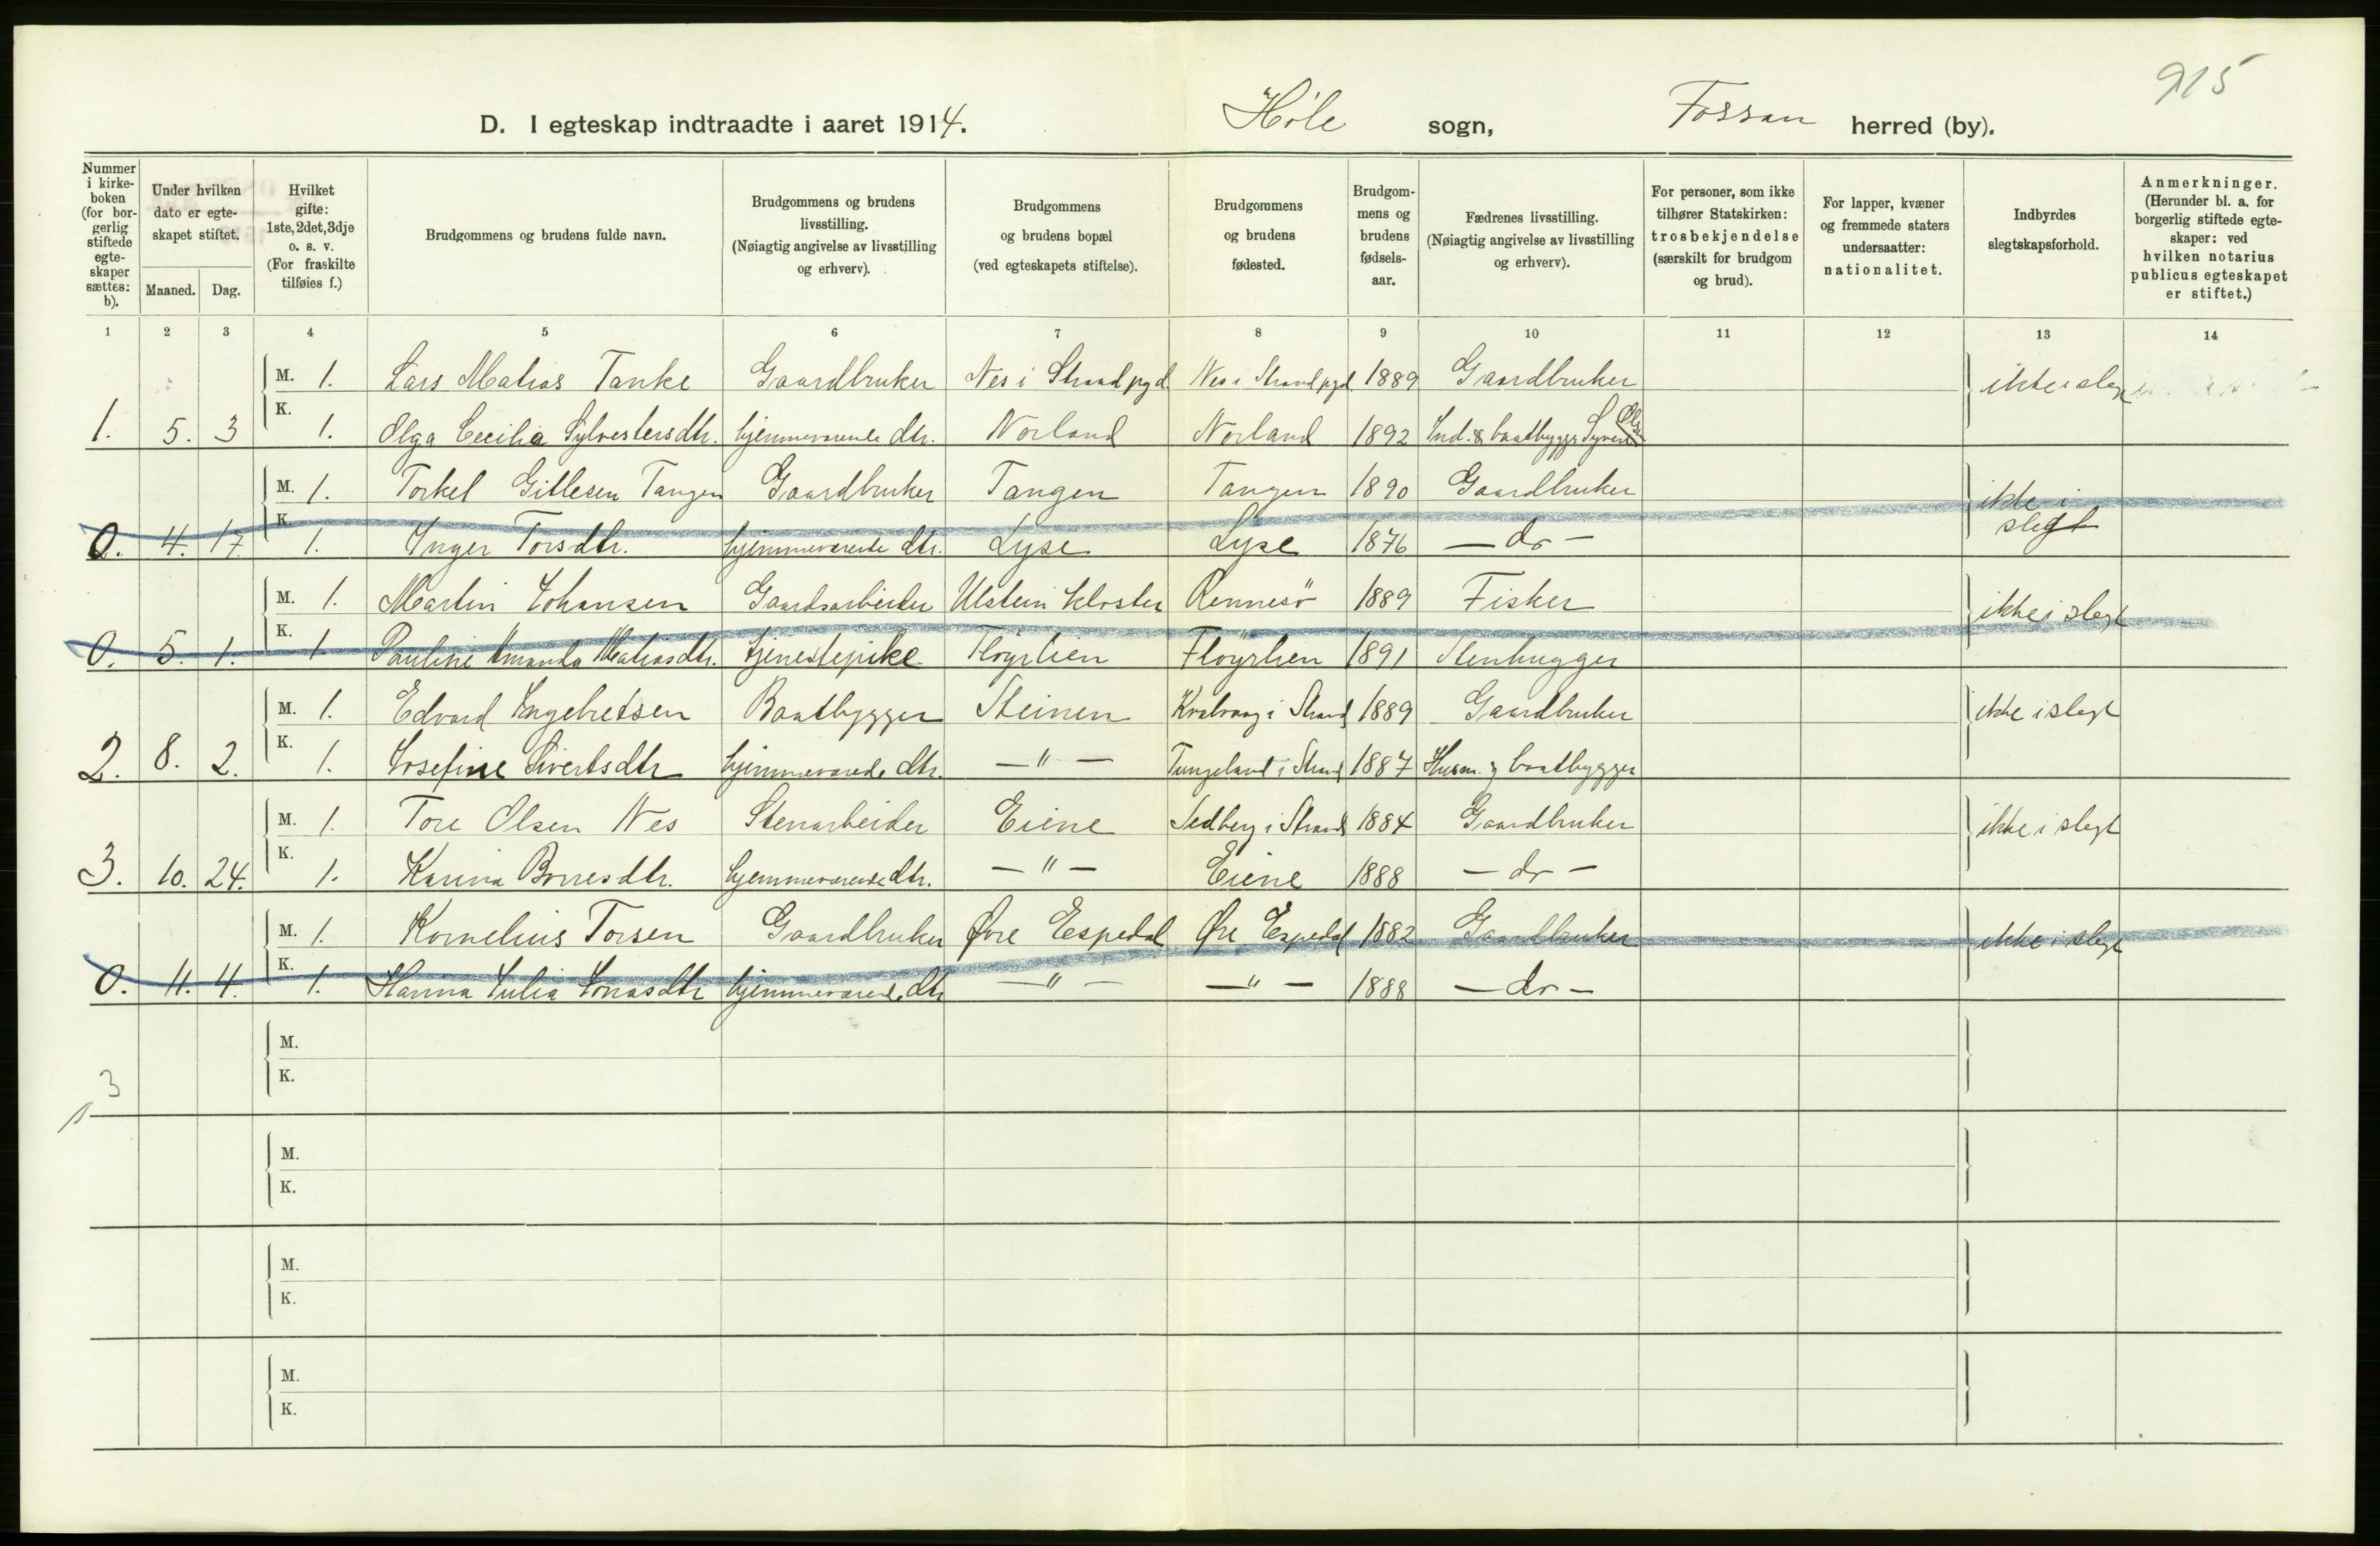 915
D. I egteskap indtraadte i aaret 1914. Høle sogn, Fossan herred (by).
Nummer i kirkeboken (for borgerlig stiftede egteskaper sættes: b). Under hvilken dato er egteskapet stiftet. Maaned. Dag. Hvilket gifte: 1ste, 2det, 3dje o. s. v. (For fraskilte tilføies f.) Brudgommens og brudens fulde navn. Brudgommens og brudens livsstilling. (Nøiagtig angivelse av livsstilling og erhverv). Brudgommens og brudens bopæl (ved egteskapets stiftelse). Brudgommens og brudens fødested. Brudgommens og brudens fødselsaar. Fædrenes livsstilling. (Nøiagtig angivelse av livsstilling og erhverv). For personer, som ikke tilhører Statskirken: trosbekjendelse (særskilt for brudgom og brud). For lapper, kvæner og fremmede staters undersaatter: nationalitet. Indbyrdes slegtskapsforhold. Anmerkninger. (Herunder bl. a. for borgerlig stiftede egteskaper: ved hvilken notarius publicus egteskapet er stiftet.)
1 2 3 4 5 6 7 8 9 10 11 12 13 14
M. 1. Lars Matias Tanke Gaardbruker Nes i Strand pgd. Nes i Strand pgd 1889 Gaardbruker ikke i slegt
1. 5. 3 K. 1. Olga Cecilia Sylvestersdtr. hjemmeværende dtr. Norland Norland 1892 Ind. & baatbygger
M. 1. Torkel Gitlesen Tangen Gaardbruker Tangen Tangen 1890 Gaardbruker ikke i slegt
0. 4. 17 K. 1. Inger Torsdtr. hjemmeværende dtr. Lyse Lyse 1876 — do —
M. 1. Martin Johansen Gaardsarbeider Utstein kloster Rennesö 1889 Fisker ikke i slegt
0. 5. 1. K. 1 Pauline Amanda Matiasdtr. tjenestepike Fløyrlien Fløyrlien 1891 Stenhugger
M. 1. Edvard Ingebretsen Baatbygger Steinen Kvalvaag i Strand 1889 Gaardbruker ikke i slegt
2. 8. 2. K. 1. Josefine Sivertsdtr hjemmeværende dtr. — " — Tungeland i Strand 1887 Husm. & baatbygger
M. 1. Tore Olsen Nes Stenarbeider Eiene Sedberg i Strand 1884 Gaardbruker ikke i slegt
3. 10. 24. K. 1. Karina Børresdtr. hjemmeværende dtr. — " — Eiene 1888 — do —
M. 1. Kornelius Torsen Gaardbruker Øvre Espedal Øvre Espedal 1882 Gaardbruker ikke i slegt
0. 11. 4. K. 1. Hanna Julia Jonasdtr hjemmeværende dtr — " — — " — 1888 — do —
M.
3 K.
M.
K.
M.
K.
M.
K.